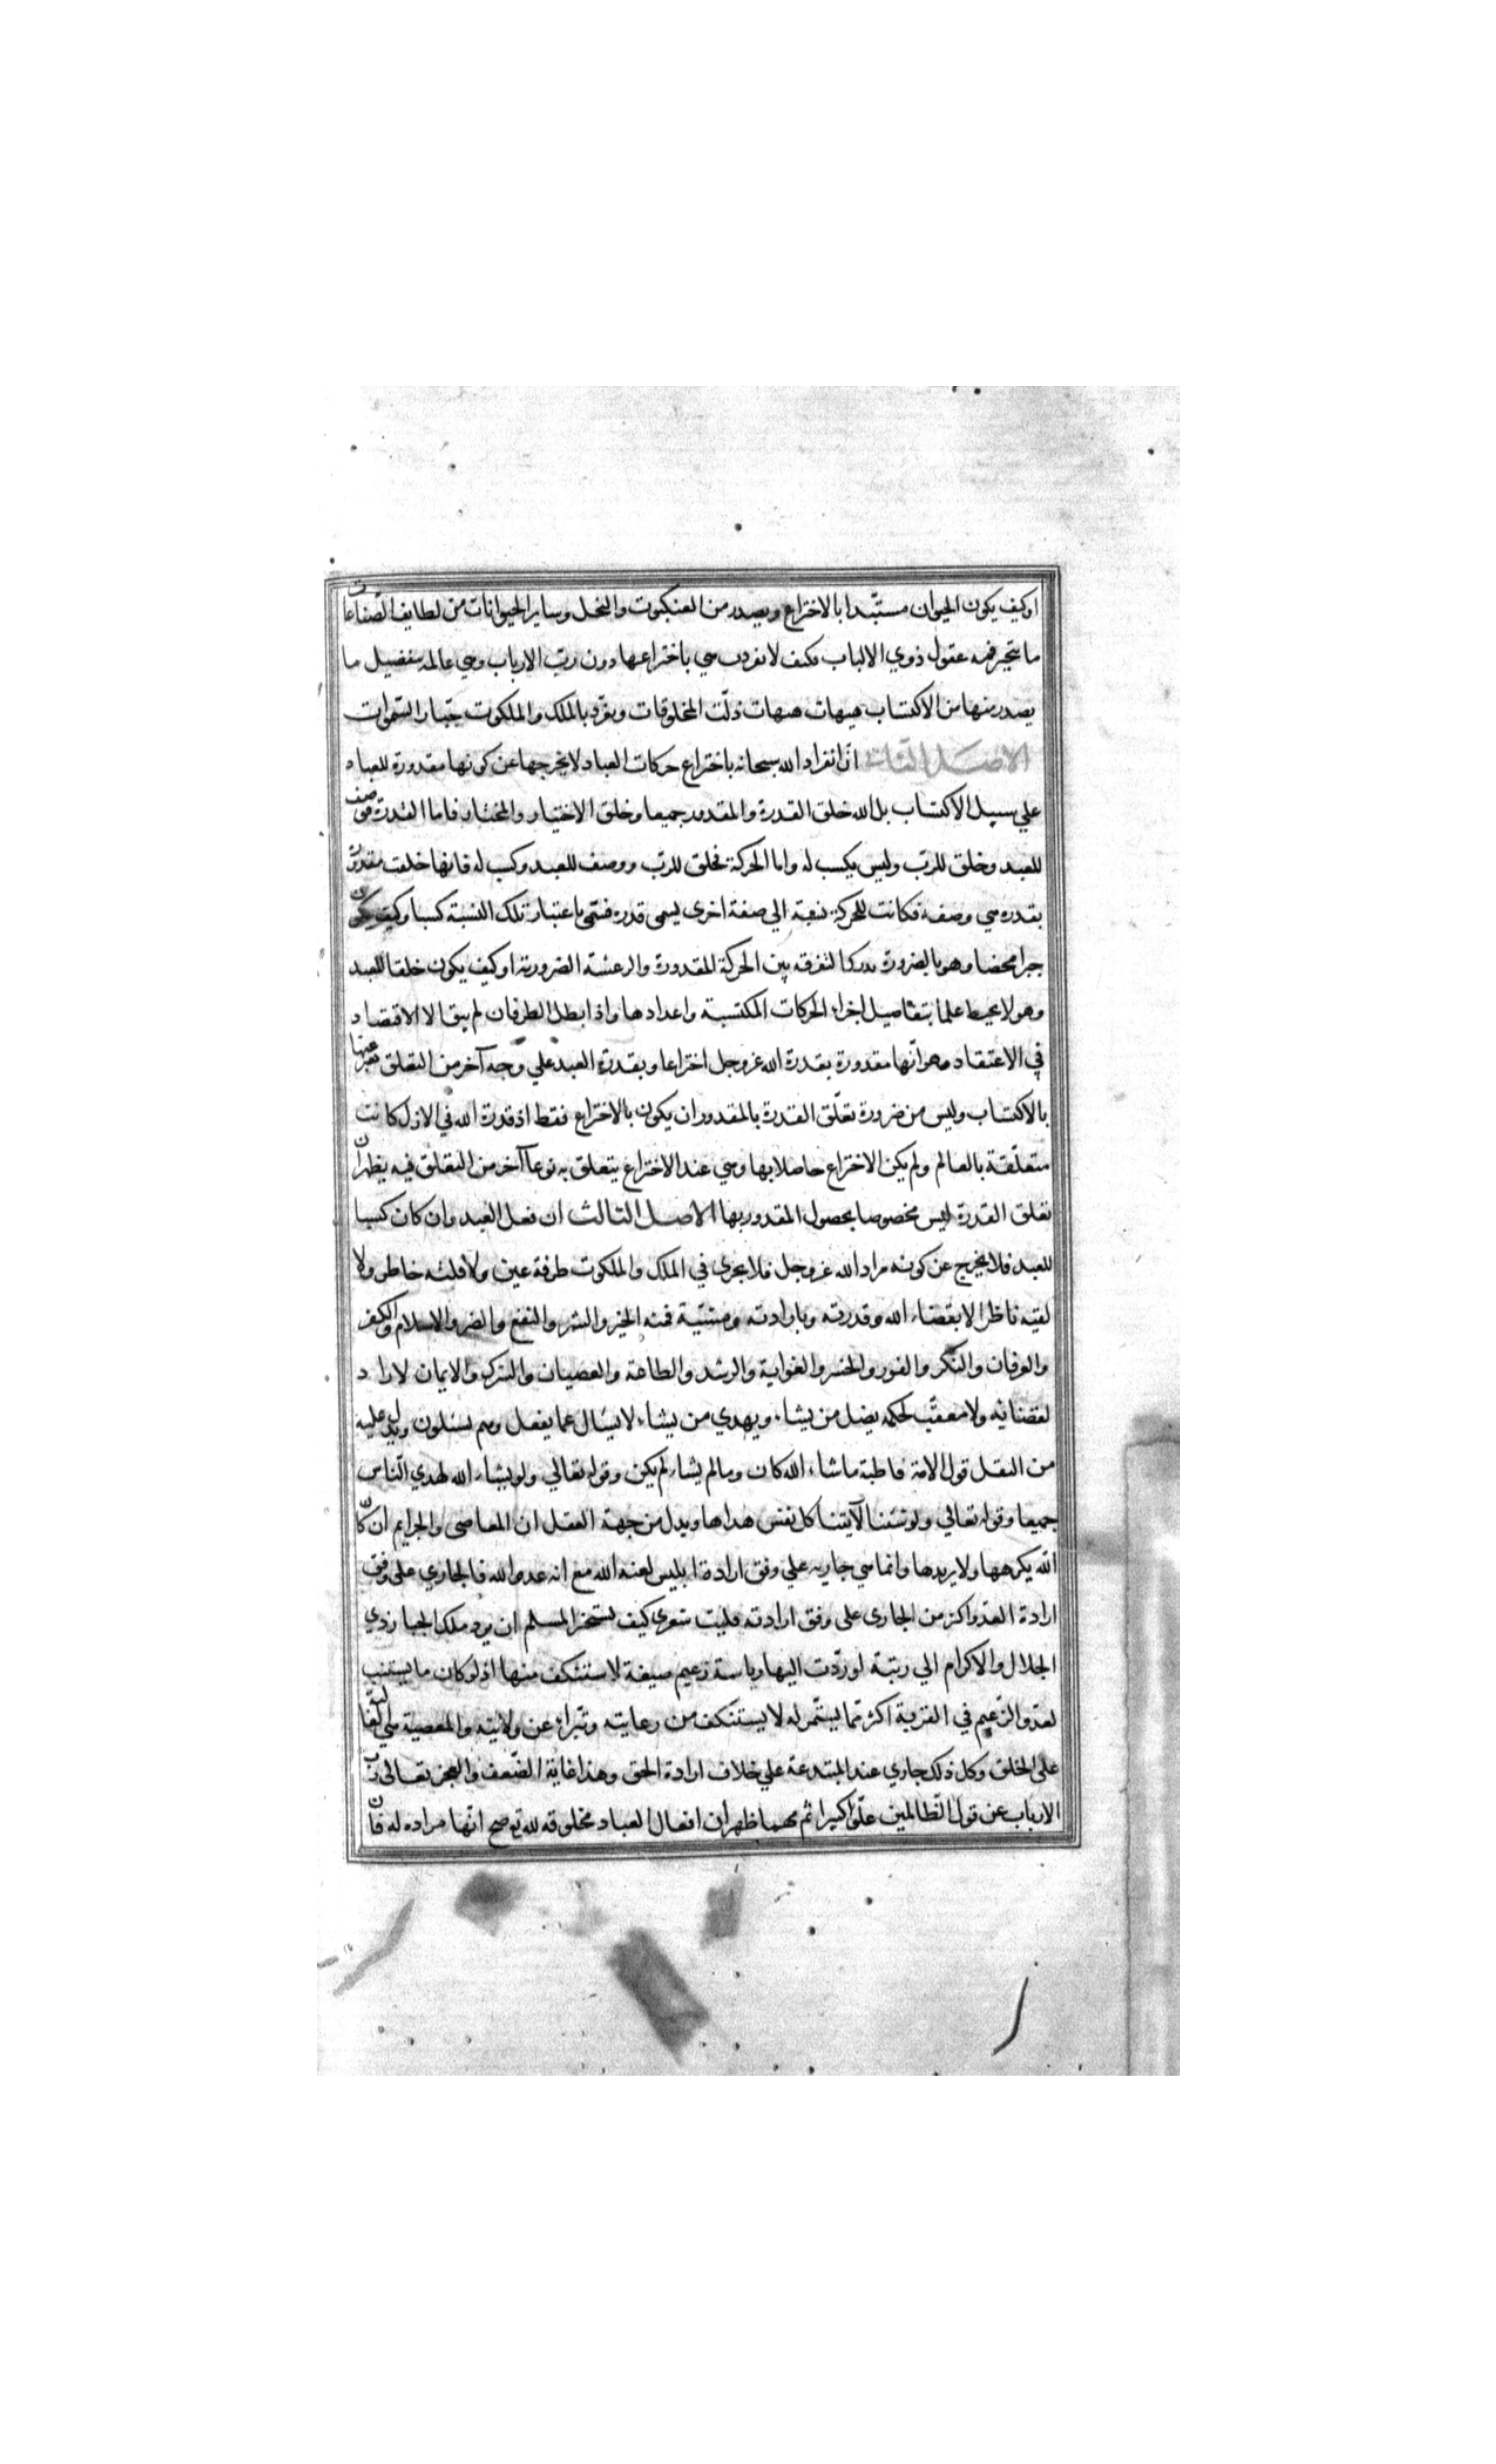 او كيف يكون الحيوان مستبّدا بالاختراع ويصدر من العنكبوت والنحل وساير الحيوانات من لطايف الصّناعات
ما يتحير فيه عقول ذوي الالباب فكيف لانفردت هي باختراعها دون ربّ الارباب وهي عالمة بتفصيل ما
يصدر منها من الاكتساب هيهات هيهات ذلّت المخلوقات وتفرّد بالملك والملكوت جبّار السّموات
الاصل الثاني انّ انفراد الله سبحانه باختراع حركات العباد لا يخرجها عن كونها مقدورة للعباد
علي سبيل الاكتساب بل الله خلق القدرة والمقدور جميعا وخلق الاختيار والمختار فاما القدرة فوصف
للعبد وخلق للربّ وليس بكسب له واما الحركة فخلق للربّ ووصف للعبد وكسب له فانها خلقت مقدورة
بقدرة هي وصفه فكانت للحركة نسبة الي صفة اخرى يسمى قدرة فتسمى باعتبار تلك النسبة كسبا وكيف يكون
جبرا محضا وهو بالضرورة يدرك التفرقة بين الحركة المقدورة والرعشة الضرورية او كيف يكون خلقا للعبد
وهو لا يحيط علما بتفاصيل اجزاء الحركات المكتسبة واعدادها واذا بطل الطرفان لم يبق الا الاقتصاد
في الاعتقاد وهو انّها مقدورة بقدرة الله عز وجل اختراعا وبقدرة العبد علي وجه آخر من التعلق يعبّر عنها
بالاكتساب وليس من ضرورة تعلّق القدرة بالمقدور ان يكون بالاختراع فقط اذ قدرة الله في الازل كانت
متعلّقة بالعالم ولم يكن الاختراع حاصلا بها وهي عند الاختراع يتعلق به نوعا آخر من التعلق فبه يظهر انّ
تعلق القدرة ليس مخصوصا بحصول المقدور بها الاصل الثالث ان فعل العبد وان كان كسبا
للعبد فلا يخرج عن كونه مراد الله عز وجل فلا يجرى في الملك والملكوت طرفة عين ولا فلتة خاطر ولا
لفتة ناظر الا بقضاء الله وقدرته وبارادته ومشيّته فمنه الخير والشر والنفع والضر والاسلام والكفر
والعرفان والنكر والفور والخسر والغواية والرشد والطاعة والعصيان والشرك والايمان لا رادّ
لقضائه ولا معقّب لحكمه يضل من يشاء ويهدي من يشاء لا يسال عما يفعل وهم يسئلون ويدل عليه
من النقل قول الامة قاطبة ما شاء الله كان وما لم يشاء لم يكن وقوله تعالي ولو يشاء الله لهدي النّاس
جميعا وقوله تعالي ولو شئنا لآتينا كل نفس هداها ويدل من جهة العقل ان المعاصى والجرايم ان كان
الله يكرهها ولا يريدها وانما هي جارية علي وفق ارادة ابليس لعنه الله مع انه عدو الله فالجاري على وفق
ارادة العدو اكثر من الجارى على وفق ارادته فليت شعرى كيف يستجيز المسلم ان يرد ملك الجبار ذي
الجلال والاكرام الي رتبة لو ردّت اليها رياسة زعيم ضيعة لاستنكف منها اذ لو كان ما يستتب
لعدو الزّعيم في القرية اكثر مما يستمر له لا يستنكف من رعايته وتبراء عن ولايته والمعصية هي الغالبة
على الخلق وكل ذلك جاري عند المبتدعة علي خلاف ارادة الحق وهذا غاية الضّعف والعجز تعالى ربّ
الارباب عن قول الظّالمين علّوا كبيرا ثم مهما ظهر ان افعال العباد مخلوقه لله توضح انّها مراده له فان